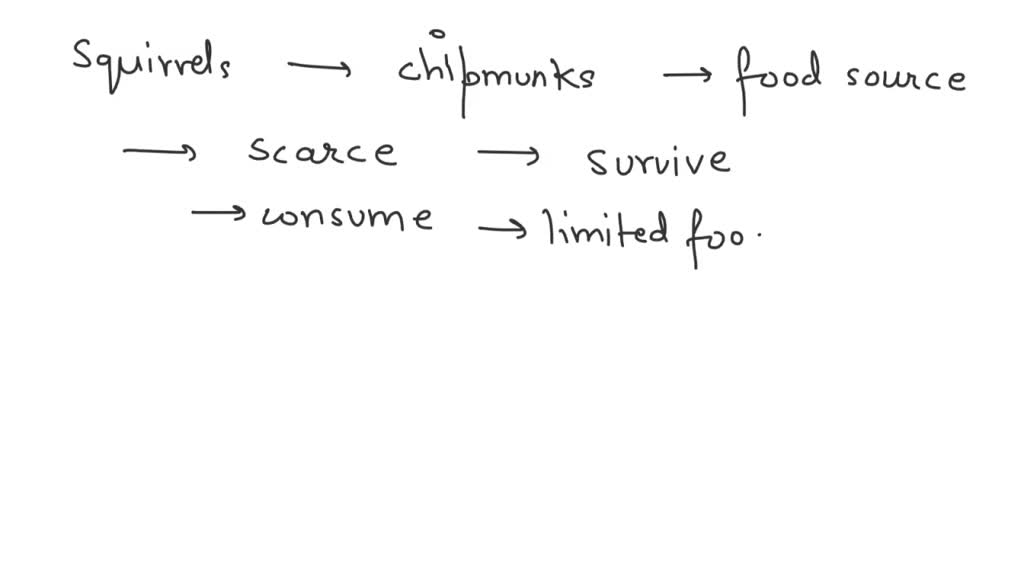 Squirrels → chipmunks → food source
→ scarce → survive
→ consume → limited foo